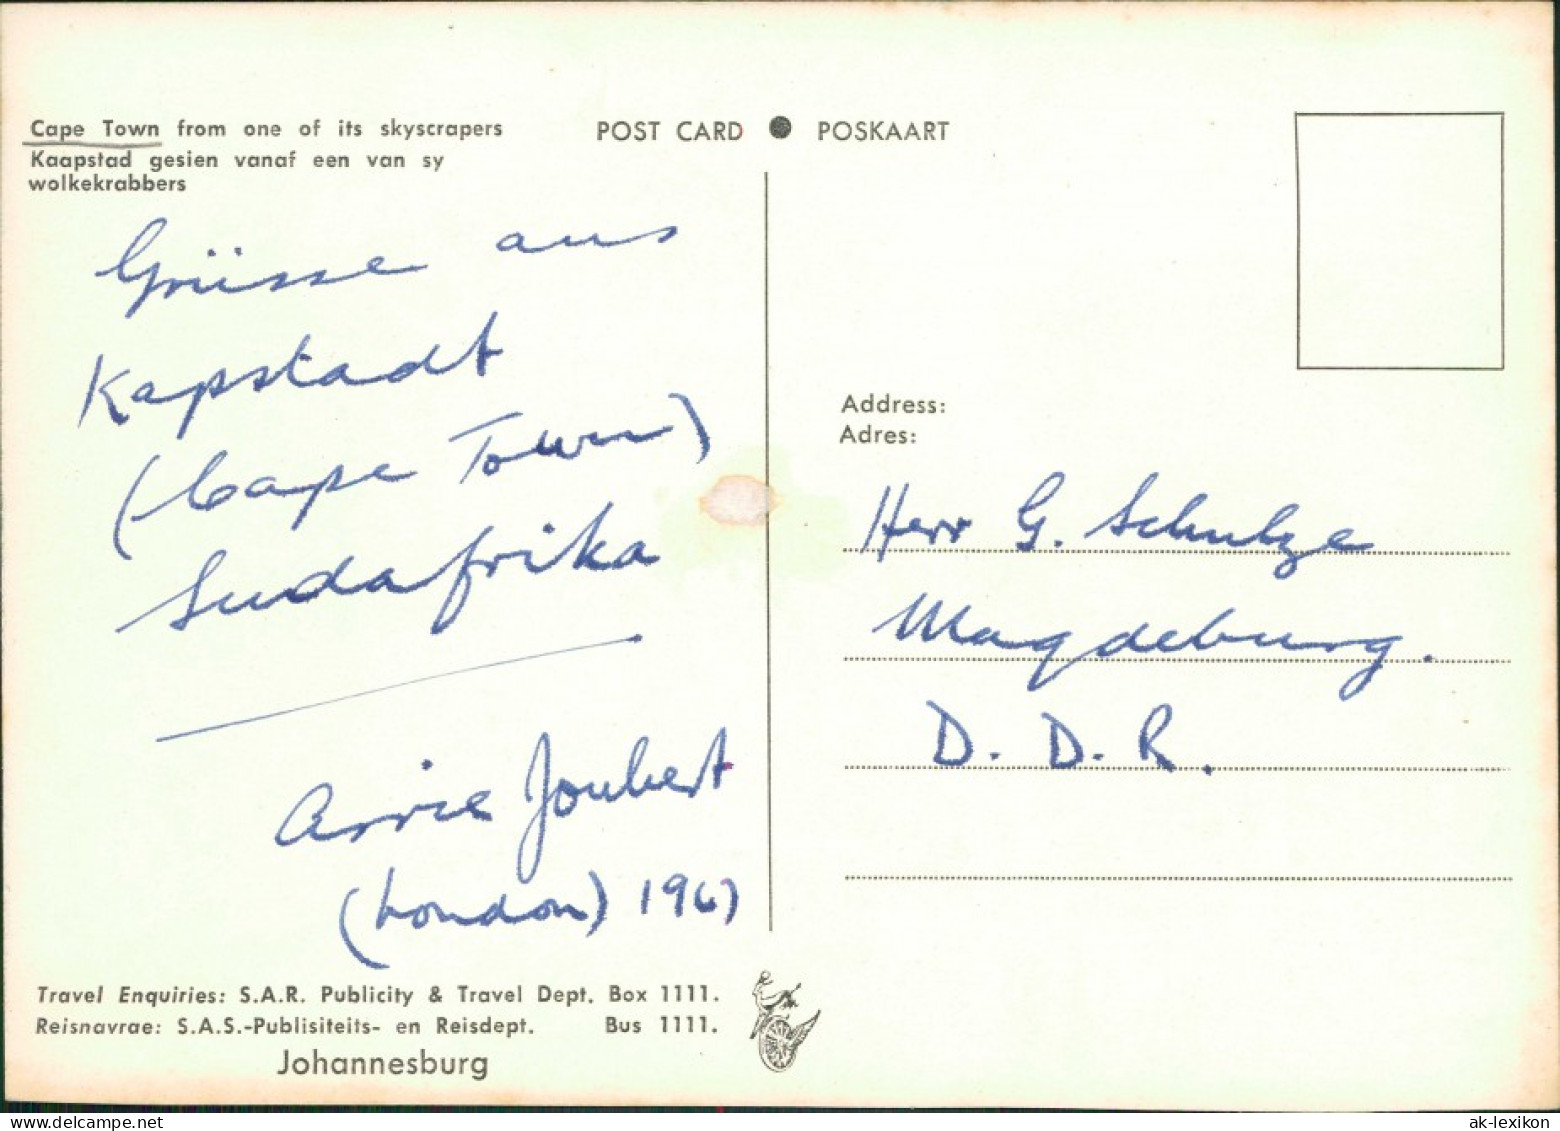 Cape Town from one of its skyscrapers
Kaapstad gesien vanaf een van sy
wolkekrabbers
POST CARD ● POSKAART
Grüsse aus
Kapstadt
(Cape Town)
Sudafrika
Arrie Joubert
(London) 1967
Address:
Adres:
Herr G. Schulze
Magdeburg.
D. D. R.
Travel Enquiries: S.A.R. Publicity & Travel Dept. Box 1111.
Reisnavrae: S.A.S.-Publisiteits- en Reisdept. Bus 1111.
Johannesburg
ak-lexikon